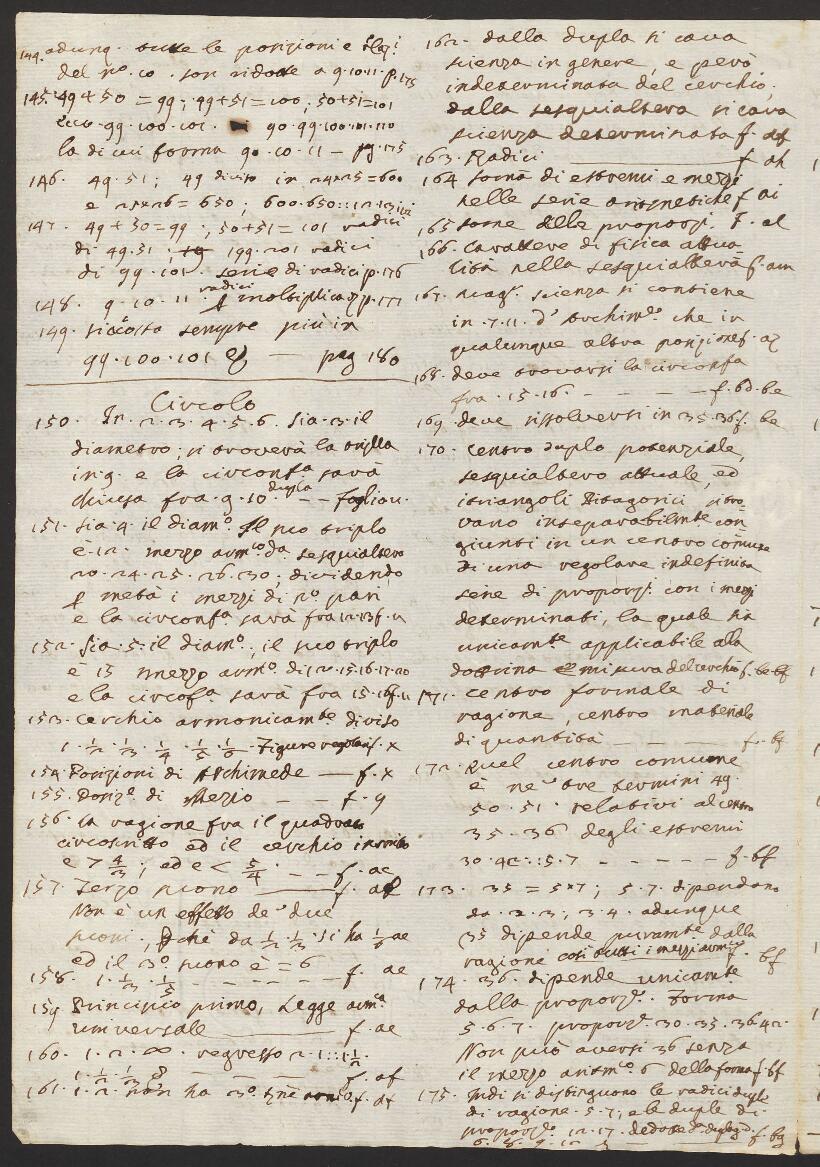 144. adunq. tutte le posizioni e
del n.º co. son ridotte a 9.10.11. p.175
145. 49+50=99; 49+51=100; 50+51=101
ecco 99.100.101. 90.99.100.101.110
la di cui forma 90.10.11 — pg.175
146. 49.51; 49 diviso in 24+25=600
e 25+26=650; 600.650::12.13
147. 49+50=99; 50+51=101 radici
di 49.51; 199.201 radici
di 99.101. serie di radici p.176
148. 9.10.11 radici p moltiplicaz. p.177
149. s'accosta sempre più in
99.100.101 — pag 180
Circolo
150. In 2.3.4.5.6. sia 3 il
diametro; si troverà la tripla
in 9. e la circonfa sarà
chiusa fra 9.10. dupla -- foglio u.
151. Sia 4 il diam.º Il suo triplo
è 12. mezzo arm.co da sesquialtera
20.24.25.26.30; dividendo
p metà i mezzi di n.º pari
e la circonfa sarà fra 12.13 f. u
152. Sia 5 il diam.º, il suo triplo
è 15 mezzo arm.º di 12.15.16.17.20
e la circofa sarà fra 15.16 f. u
153. Cerchio armonicamte diviso
1. 1/2. 1/3. 1/4. 1/5. 1/6. Figure regolari f. x
154. Posizioni di Archimede — f. x
155. Posiz.e di Mezio -- f. y
156. la ragione fra il quadrato
circoscritto ed il cerchio inscritto
è > 4/3; ed e < 5/4 -- f. ac
157. Terzo suono — f. ae
Non è un effetto de' due
suoni, pchè da 1/2. 1/3. si ha 1/6 ae
ed il 3.º suono è = 6
158. 1. 1/3. 1/5 ---- f. ae
159. Principio primo, Legge arm.ca
universale — f. ae
160. 1. 2. ∞. regresso 2.1::1.1/2.
1. 1/2. 1/3 ---- f. af
161. 1.2. non ha 3.º tñe f. af
162. dalla dupla si cava
scienza in genere, e però
indeterminata del cerchio;
dalla sesquialtera si cava
scienza determinata f. af
163. Radici — f. ah
164 somā di estremi e mezzi
nelle serie aritmetiche f. ai
165 some delle proporz. f. al
166. Carattere di fisica attua-
lità nella sesquialtera f. am
167. magr. scienza si contiene
in 7.11. d'Archim.de che in
qualunque altra posizione f. az
168. deve trovarsi la circonfa
fra 15.16. ---- f. bd. be
169. deve risolversi in 35.36 f. be
170. Centro duplo potenziale,
sesquialtero attuale, ed
i triangoli Pitagorici si tro-
vano inseparabilmte con-
giunti in un centro comune
di una regolare indefinita
serie di proporz. con i mezzi
determinati, la quale sia
unicamte applicabile alla
dottrina e misura del cerchio f. be bf
171. Centro formale di
ragione, centro materiale
di quantità ---- f. bf
172. Quel centro comune
è ne' tre termini 49.
50.51. relativi al centro
35.36. degli estremi
30.42::5.7 ---- f. bf
173. 35=5x7; 5.7. dipendono
da 2.3; 3.4. adunque
35 dipende puramte dalla
ragione così tutti i mezzi armci f. bf
174. 36. dipende unicamte
dalla proporz.e. Forma
5.6.7. proporz.e 30.35.36.42.
Non può aversi 36 senza
il mezzo aritm.co 6 della forma f. bf
175. Indi si distinguono le radici duple
di ragione 5.7; e le duple di
proporz.e 12.17. f. bg